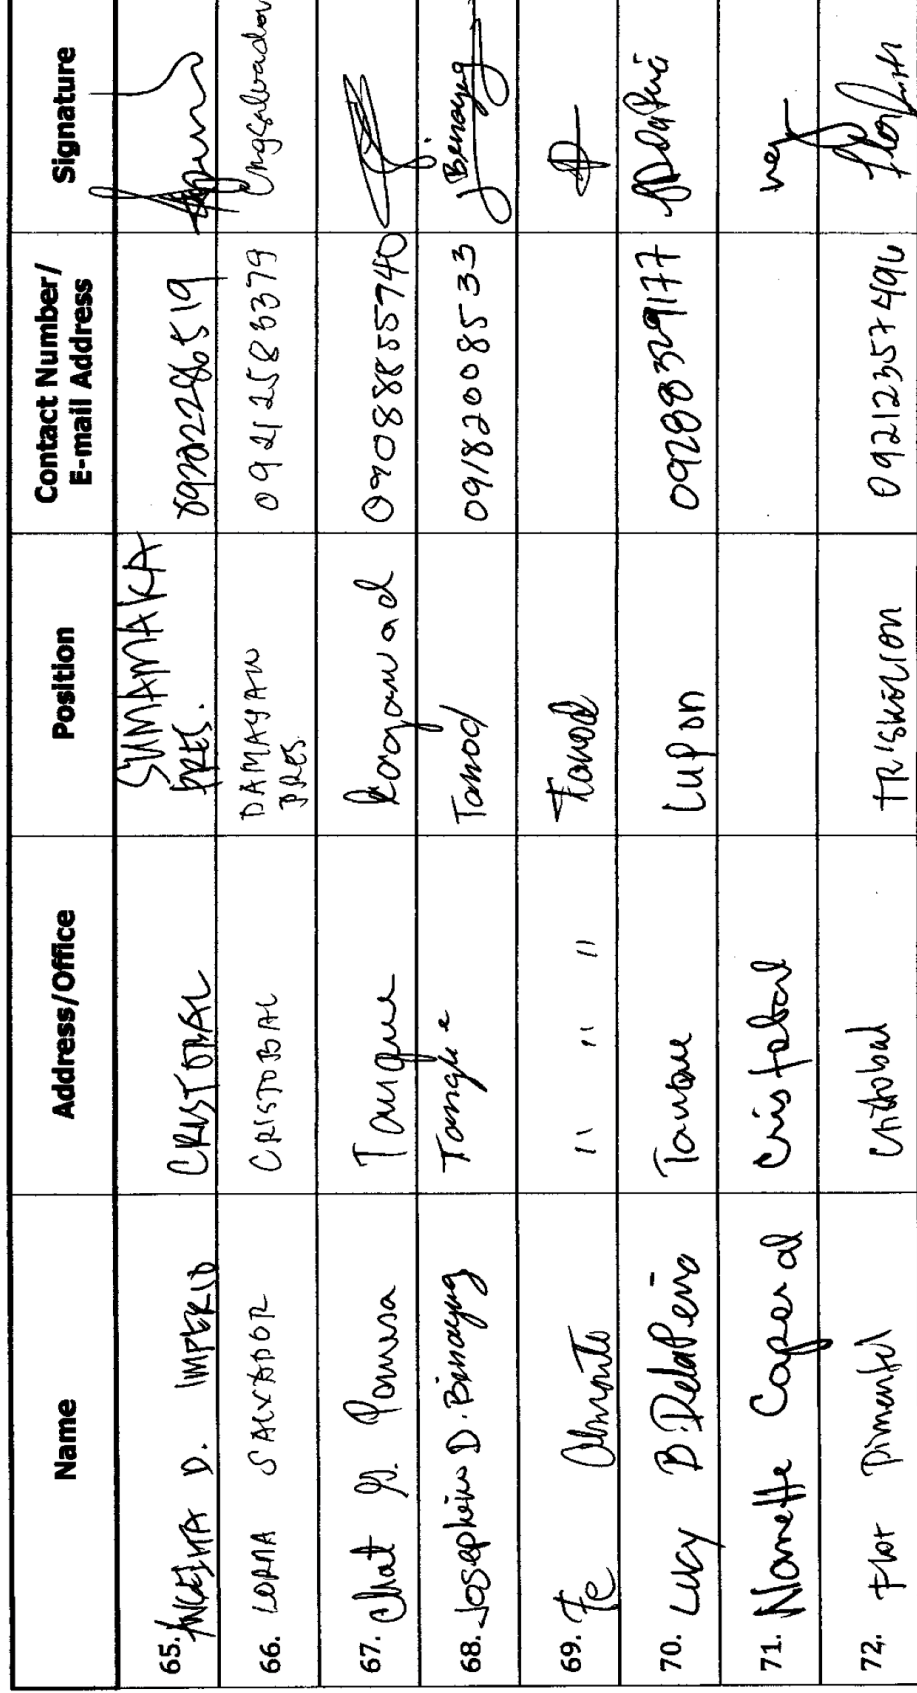 Name Address/Office Position Contact Number/ E-mail Address Signature
65. D. IMPERIO CRISTOBAL SUMAMAKA PRES.
66. LORNA SALVADOR CRISTOBAL DAMAYAN PRES. 09212583379 Lmgsalvador
67. Chat Tanque Kagawad 09088855740
68. Josephine D. Binayug Tanque Tanod 09182008533 JBinayug
69. Fe Almonte " " " Tanod
70. Lucy B. Dela Peña Tanque Lupon 09288329177
71. Nanette Caparal Cristobal
72. Flor Pimentel Cristobal TRISKELION 09212357496